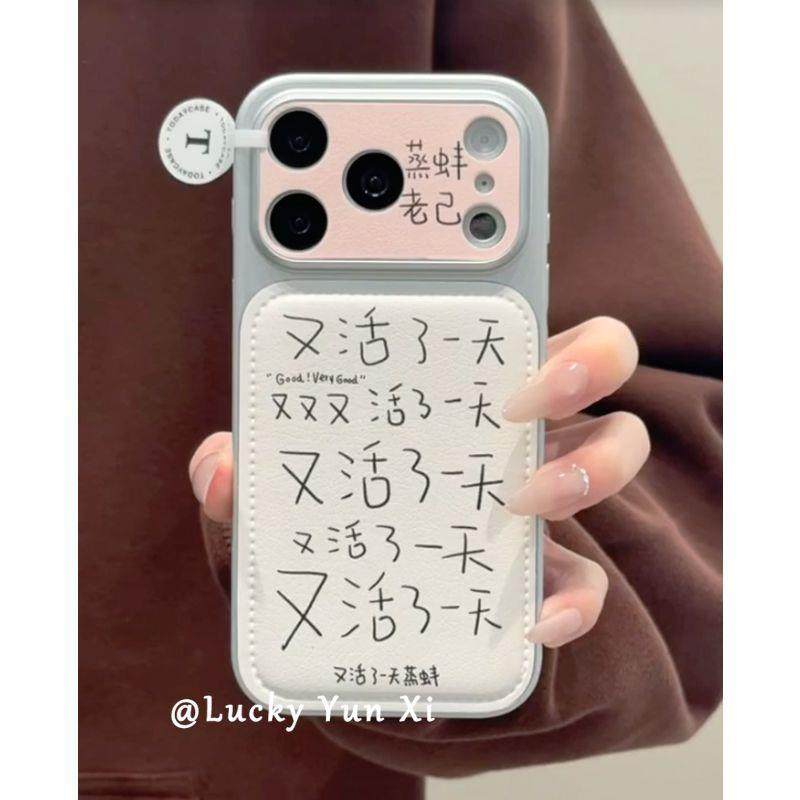 TODAYCASE • TODAYCASE •
T
蒸蚌
老己
又活了一天
"Good!Very Good"
又又又活了一天
又活了一天
又活了一天
又活了一天
又活了一天蒸蚌
@Lucky Yun Xi